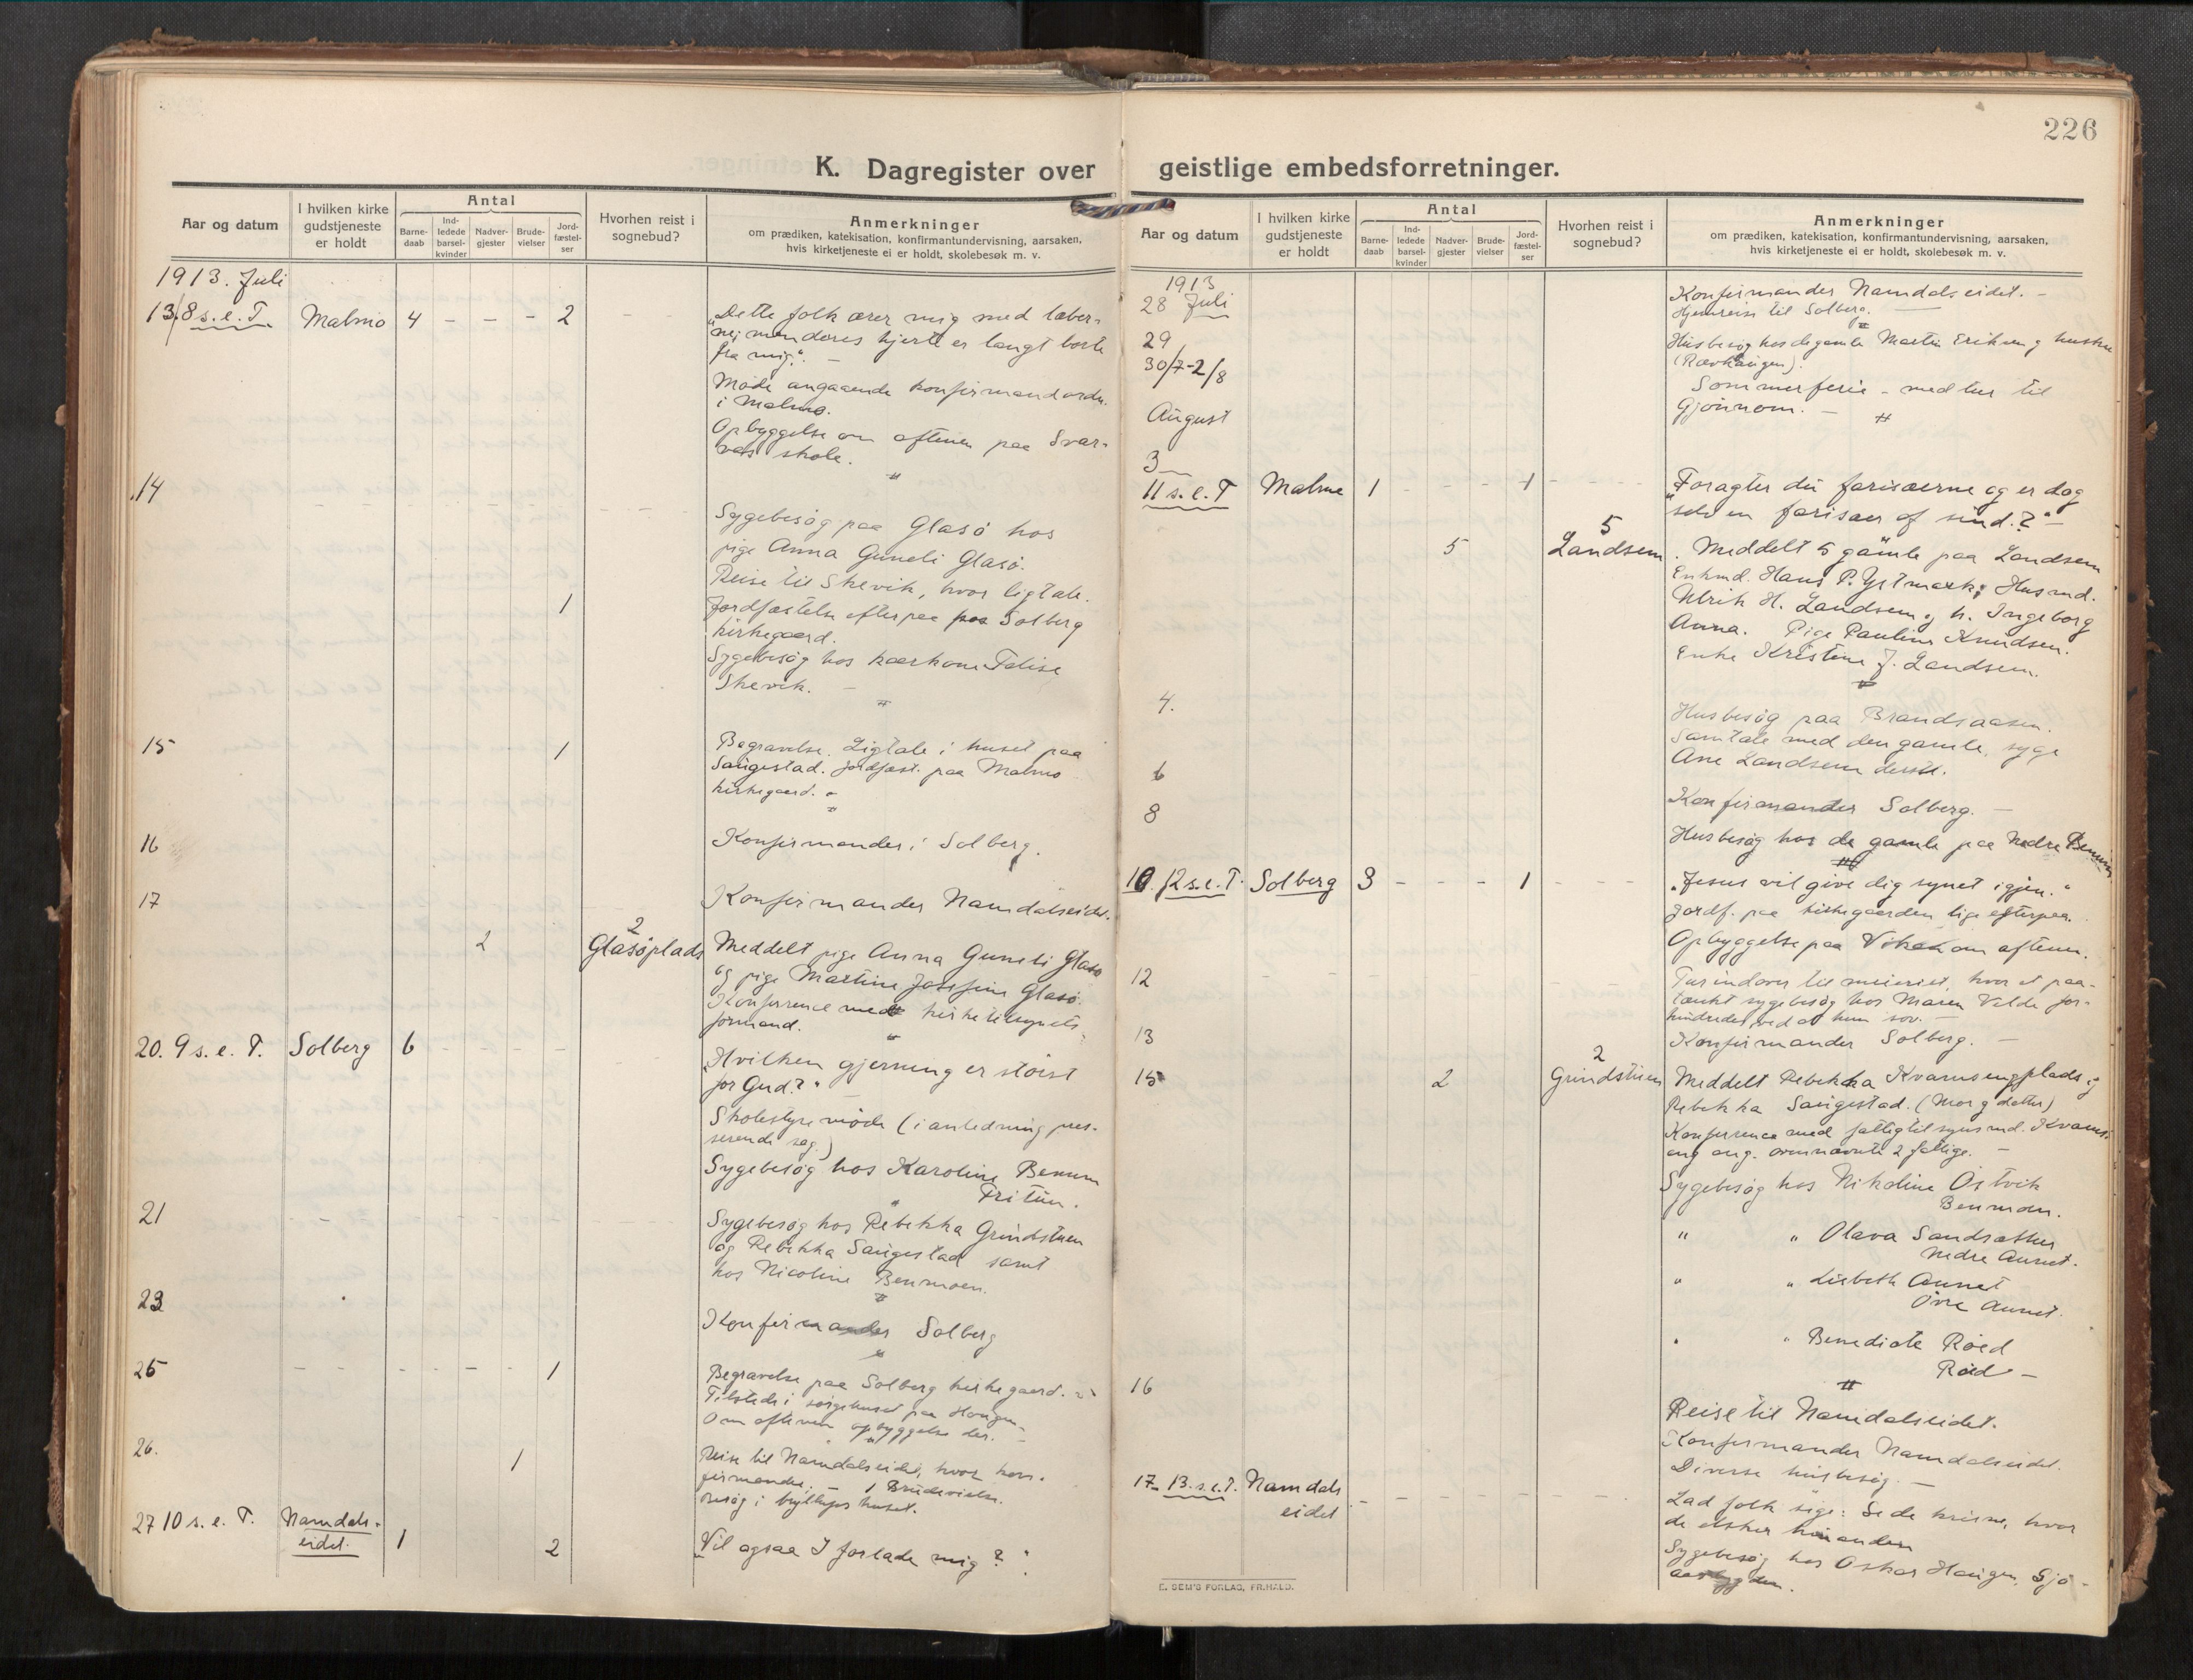 K. Dagregister over
Aar og datum
I hvilken kirke
gudstjeneste
er holdt
Antal
Barne-
daab
Ind-
ledede
barsel-
kvinder
Nadver-
gjester
Brude-
vielser
Jord-
fæstel-
ser
Hvorhen reist i
sognebud?
Anmerkninger
om prædiken, katekisation, konfirmantundervisning, aarsaken,
hvis kirketjeneste ei er holdt, skolebesøk m. v.
1913. Juli
13/8 s. e. T. Malmo 4 - - - 2 - - „Dette folk ærer mig med læber-
ne; men deres hjerte er langt borte
fra mig." -
Møde angaaende konfirmandordn.
i Malmo.
Opbyggelse om aftenen paa Svar-
vas skole.
"
14
Sygebesøg paa Glasø hos
pige Anna Guneli Glasø.
Reise til Skevik, hvor ligtale.
1 Jordfæstelse efterpaa paa Solberg
kirkegaard.
Sygebesøg hos kaarkone
Skevik. -
"
15 1 Begravelse. Ligtale i huset paa
Saugestad. Jordfæst. paa Malmo
kirkegaard. -
"
16 Konfirmander i Solberg.
17 Konfirmander Namdalseidet.
2
2 Glasøplads Meddelt pige Anna Guneli Glasø
og pige Martine Josefine Glasø.
Konferrence med kirketilsynets
formand.
"
20. 9 s. e. T. Solberg 6 - - - - „Hvilken gjerning er størst
for Gud?" -
Skolestyremøde (i anledning pres-
serende sag)
Sygebesøg hos Karoline Benum
Fritun.
"
21 Sygebesøg hos Rebekka Grindstuen
og Rebekka Saugestad samt
hos Nicoline Benmoen.
"
23 Konfirmander Solberg
"
25 - - - - - 1 Begravelse paa Solberg kirkegaard.
Tilstede i sørgehuset paa Haugen.
Om aftenen opbyggelse der. -
"
26. 1 Reise til Namdalseidet, hvor kon-
firmander. - 1 Brudevielse.
Besøg i bryllupshuset.
27 10 s. e. T. Namdals-
eidet. 1 2 „Vil ogsaa I forlade mig?"
226
geistlige embedsforretninger.
Aar og datum
I hvilken kirke
gudstjeneste
er holdt
Antal
Barne-
daab
Ind-
ledede
barsel-
kvinder
Nadver-
gjester
Brude-
vielser
Jord-
fæstel-
ser
Hvorhen reist i
sognebud?
Anmerkninger
om prædiken, katekisation, konfirmantundervisning, aarsaken,
hvis kirketjeneste ei er holdt, skolebesøk m. v.
1913
28 Juli Konfirmander Namdalseidet. -
Hjemreise til Solberg.
"
29 Husbesøg hos de gamle Martin Eriksen og hustru
(Rævhaugen).
30/7-2/8 Sommerferie - med tur til
Gjønnom. -
"
August
3
11 s. e. T Malmo 1 - - - 1 - - „Foragter du farisæerne og er dog
selv en farisæer af sind?" -
5
5 Landsem. Meddelt 5 gamle paa Landsem
Enkmd. Hans P. Ystmark; Husmd.
Ulrik H. Landsem og h. Ingeborg
Anna. Pige Pauline Knudsen.
Enke Kristine J. Landsem.
"
4. Husbesøg paa Brandsaasen.
Samtale med den gamle, syge
Ane Landsem
6 Konfirmander Solberg. -
8 Husbesøg hos de gamle paa Nedre Benum
"
10. 12 s. e. T. Solberg 3 - - - 1 - - „Jesus vil give dig synet igjen."
Jordf. paa kirkegaarden lige efterpaa.
Opbyggelse paa om aftenen.
12 Tur indover til meieriet, hvor et paa-
tænkt sygebesøg hos Maren Velde for-
hindredes ved at hun sov. -
13 Konfirmander Solberg. -
2
15 2 Grindstuen Meddelt Rebekka Kvamsengplads og
Rebekka Saugestad. (Mor og datter)
Konferrence med fattigtilsynsmd. Kvams-
eng ang. ovennævnte 2 fattige. -
Sygebesøg hos Nikoline Østvik
Benmoen.
" " Olava Sandsæther
nedre Aunet.
" " Lisbeth Aunet
Øvre Aunet.
" " Benedicte Røed
Røed -
"
16 Reise til Namdalseidet.
Konfirmander Namdalseidet.
Diverse husbesøg. -
17. 13. s. e. T. Namdals
eidet - - - - - - - Lad folk sige: Se de kristne, hvor
de elsker hinanden
Sygebesøg hos Oskar Haugen, Sjø-
aasbygden.
E. SEM'S FORLAG, FR.HALD.